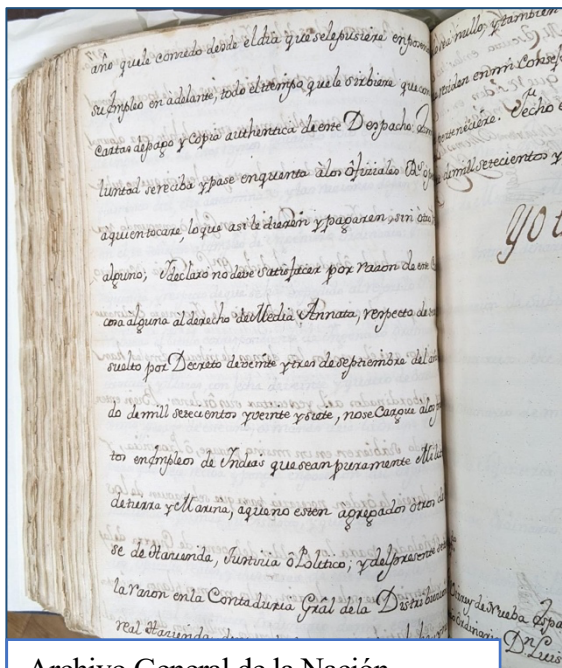 año que le concedo desde el dia que se le pusiere en
su Empleo en adelante, todo el tiempo que le sirbiere que con
Cartas de pago y Copia authentica de este Despacho
luntad se reciba y pase en quenta à los ôficiales
a quien tocare, lo que asi le dieren y pagaren, sin otro
alguno; declaro no deve satisfacer por razon de
cosa alguna al derecho de Media Annata, respecto de
suelto por Decreto de veinte y tres de septiembre del
do de mill setecientos y veinte y siete, no se Cargue a los
tos en êmpleos de Yndias que sean puramente
de tierra y Marina, a que no esten agregados otros de
se de Hazienda, Justicia ô Politico; y del presente
la razon en la Contaduria Grâl de la
real Hazienda
nullo, y tambien
residen en mi Consejo
perteneciere. Fecho
de mill setecientos y
Yo
de Nueba Espa
Ordinario Dn Luis
Archivo General de la Nación